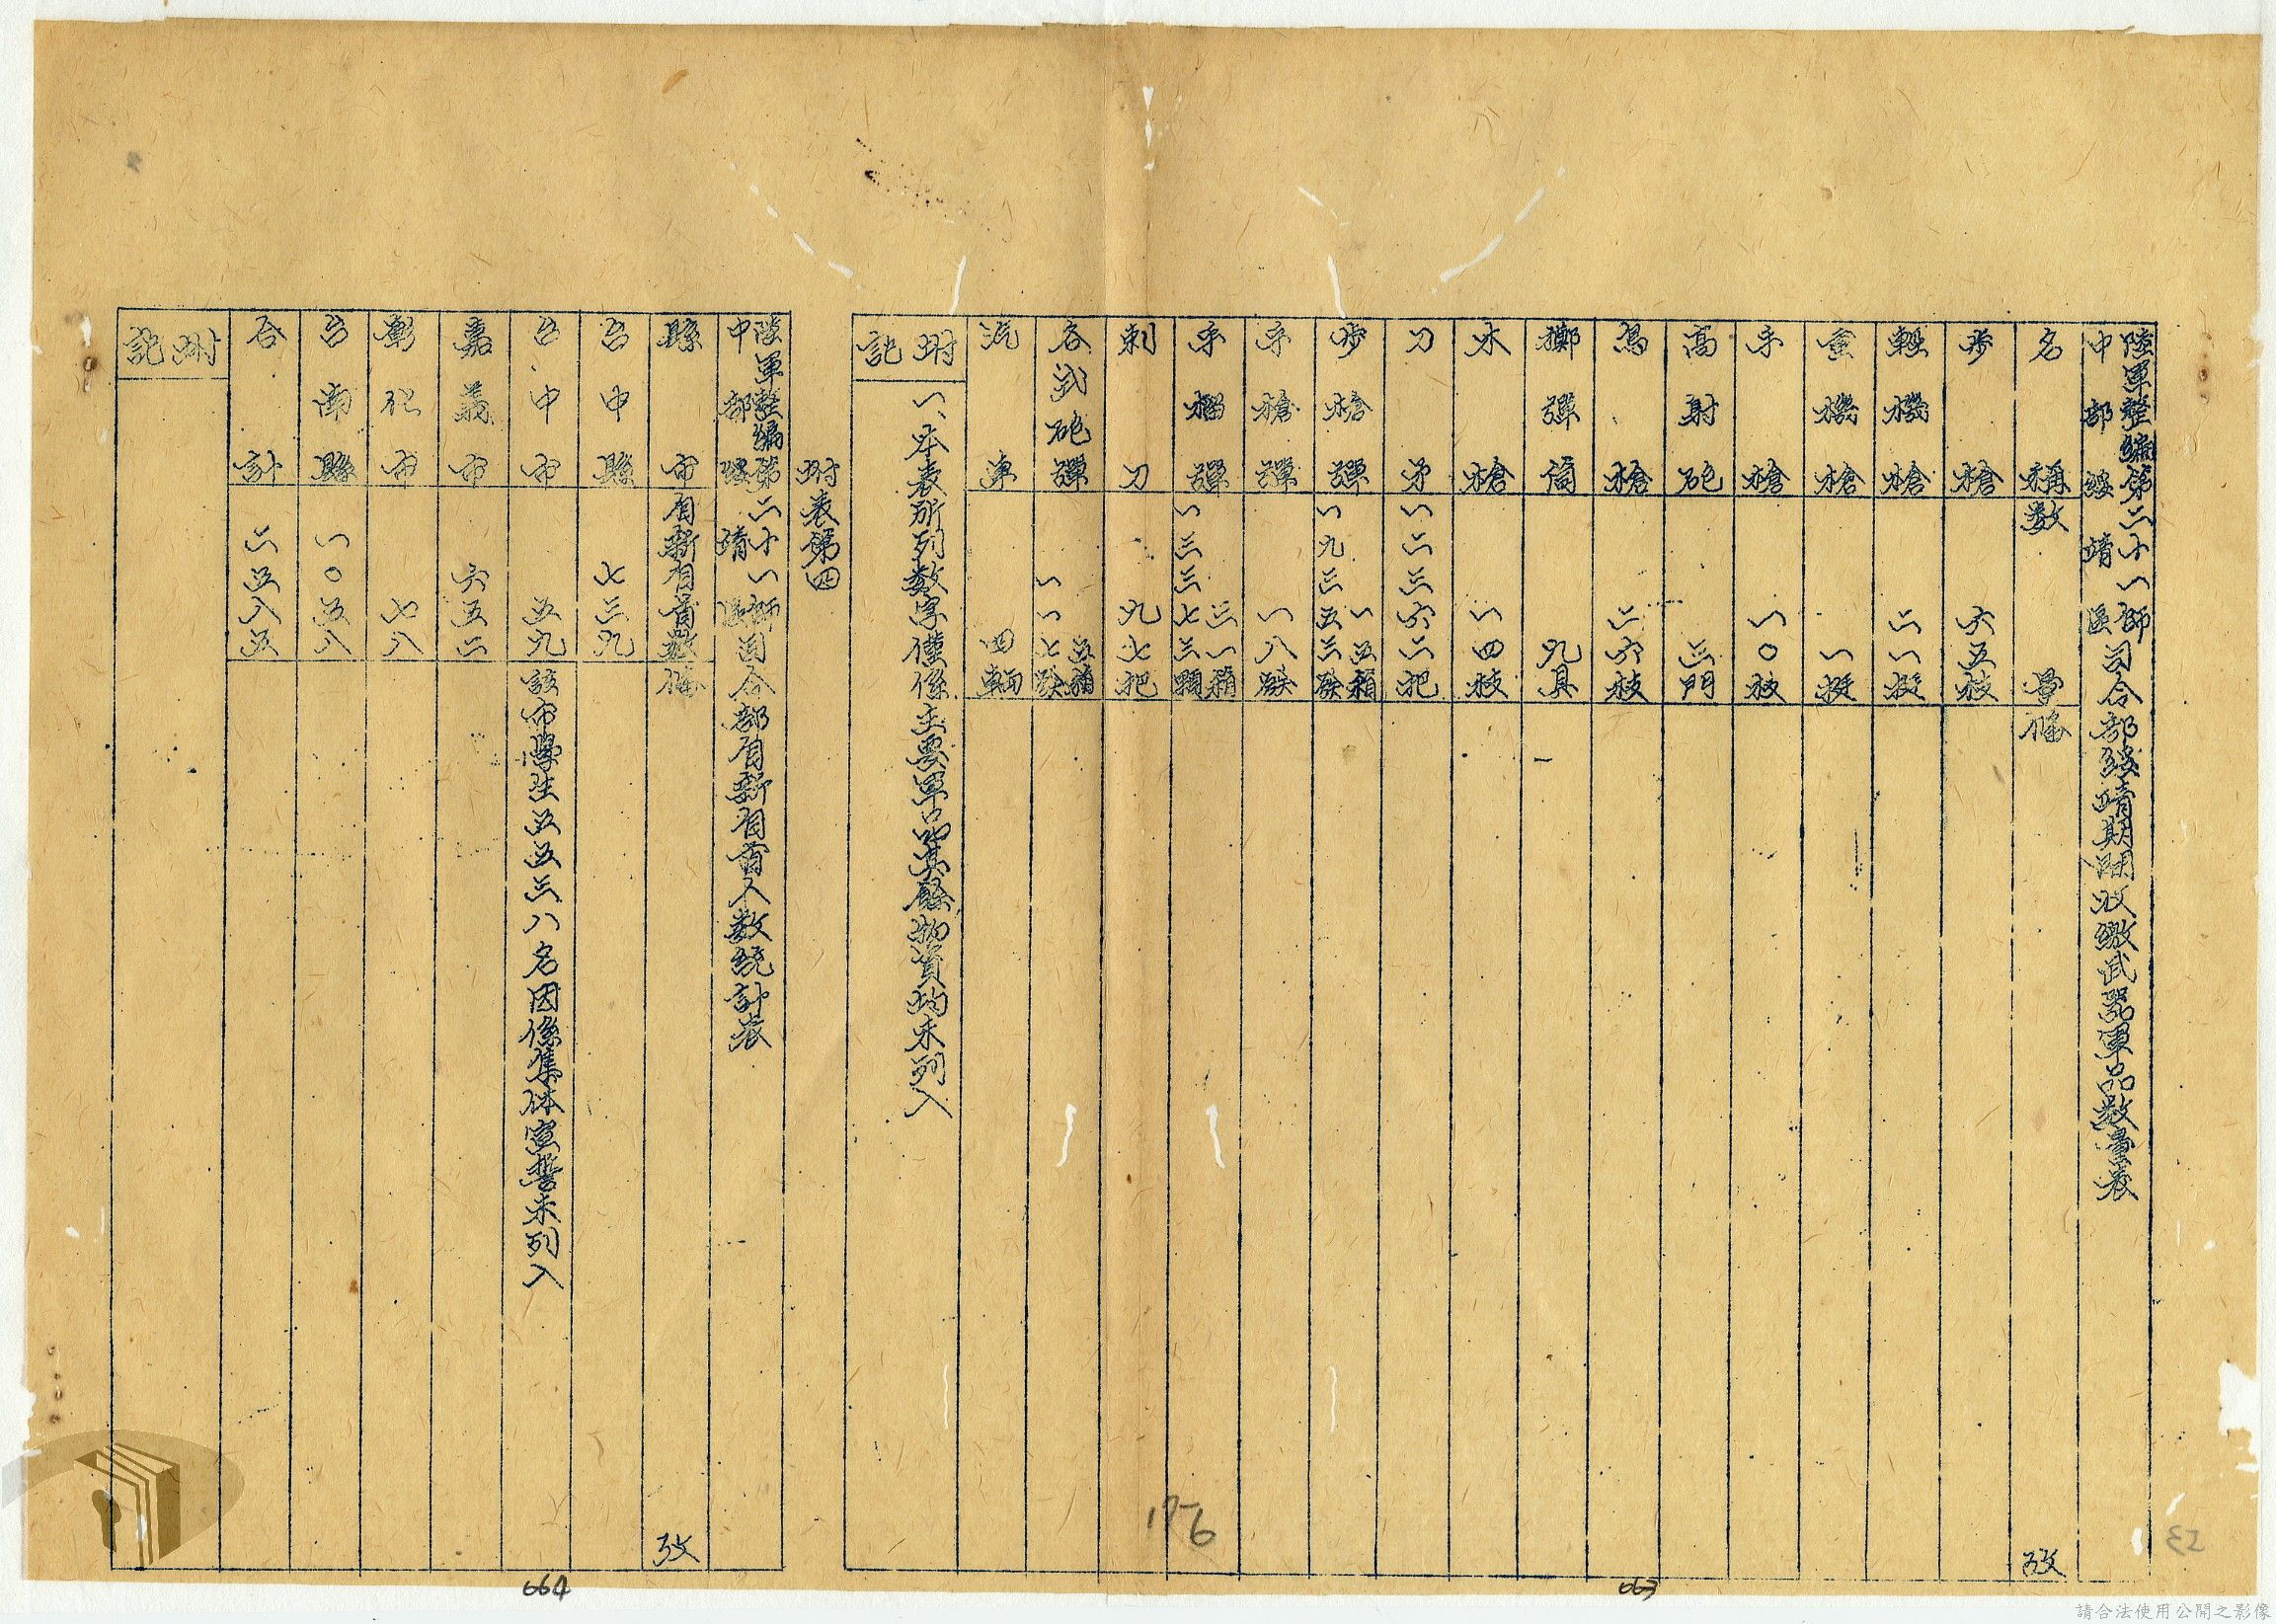 陸軍整編第二十一師司令部綏靖期間收繳武器軍品數量表
中部綏靖區
名稱 數量 備攷
步槍 六五枝
輕機槍 二一挺
重機槍 一挺
手槍 一〇枝
高射砲 三門
鳥槍 二六枝
擲彈筒 九具
木槍 一四枝
刀矛 一二三六二把
步槍彈 一五箱 一九三五三發
手槍彈 一八發
手榴彈 三一箱 一三三七三顆
刺刀 九七把
各式砲彈 五箱 一一七發
汽車 四輛
附記 一、本表所列數字僅係主要軍品其餘物資均未列入
附表第四
陸軍整編第二十一師司令部自新自首人數統計表
中部綏靖區
縣市 自新自首數 備攷
台中縣 七三九
台中市 五九 該市學生五五三八名因係集体宣誓未列入
嘉義市 六五二
彰化市 七八
台南縣 一〇五八
合計 二五八五
附記
176
32
664
663
請合法使用公開之影像